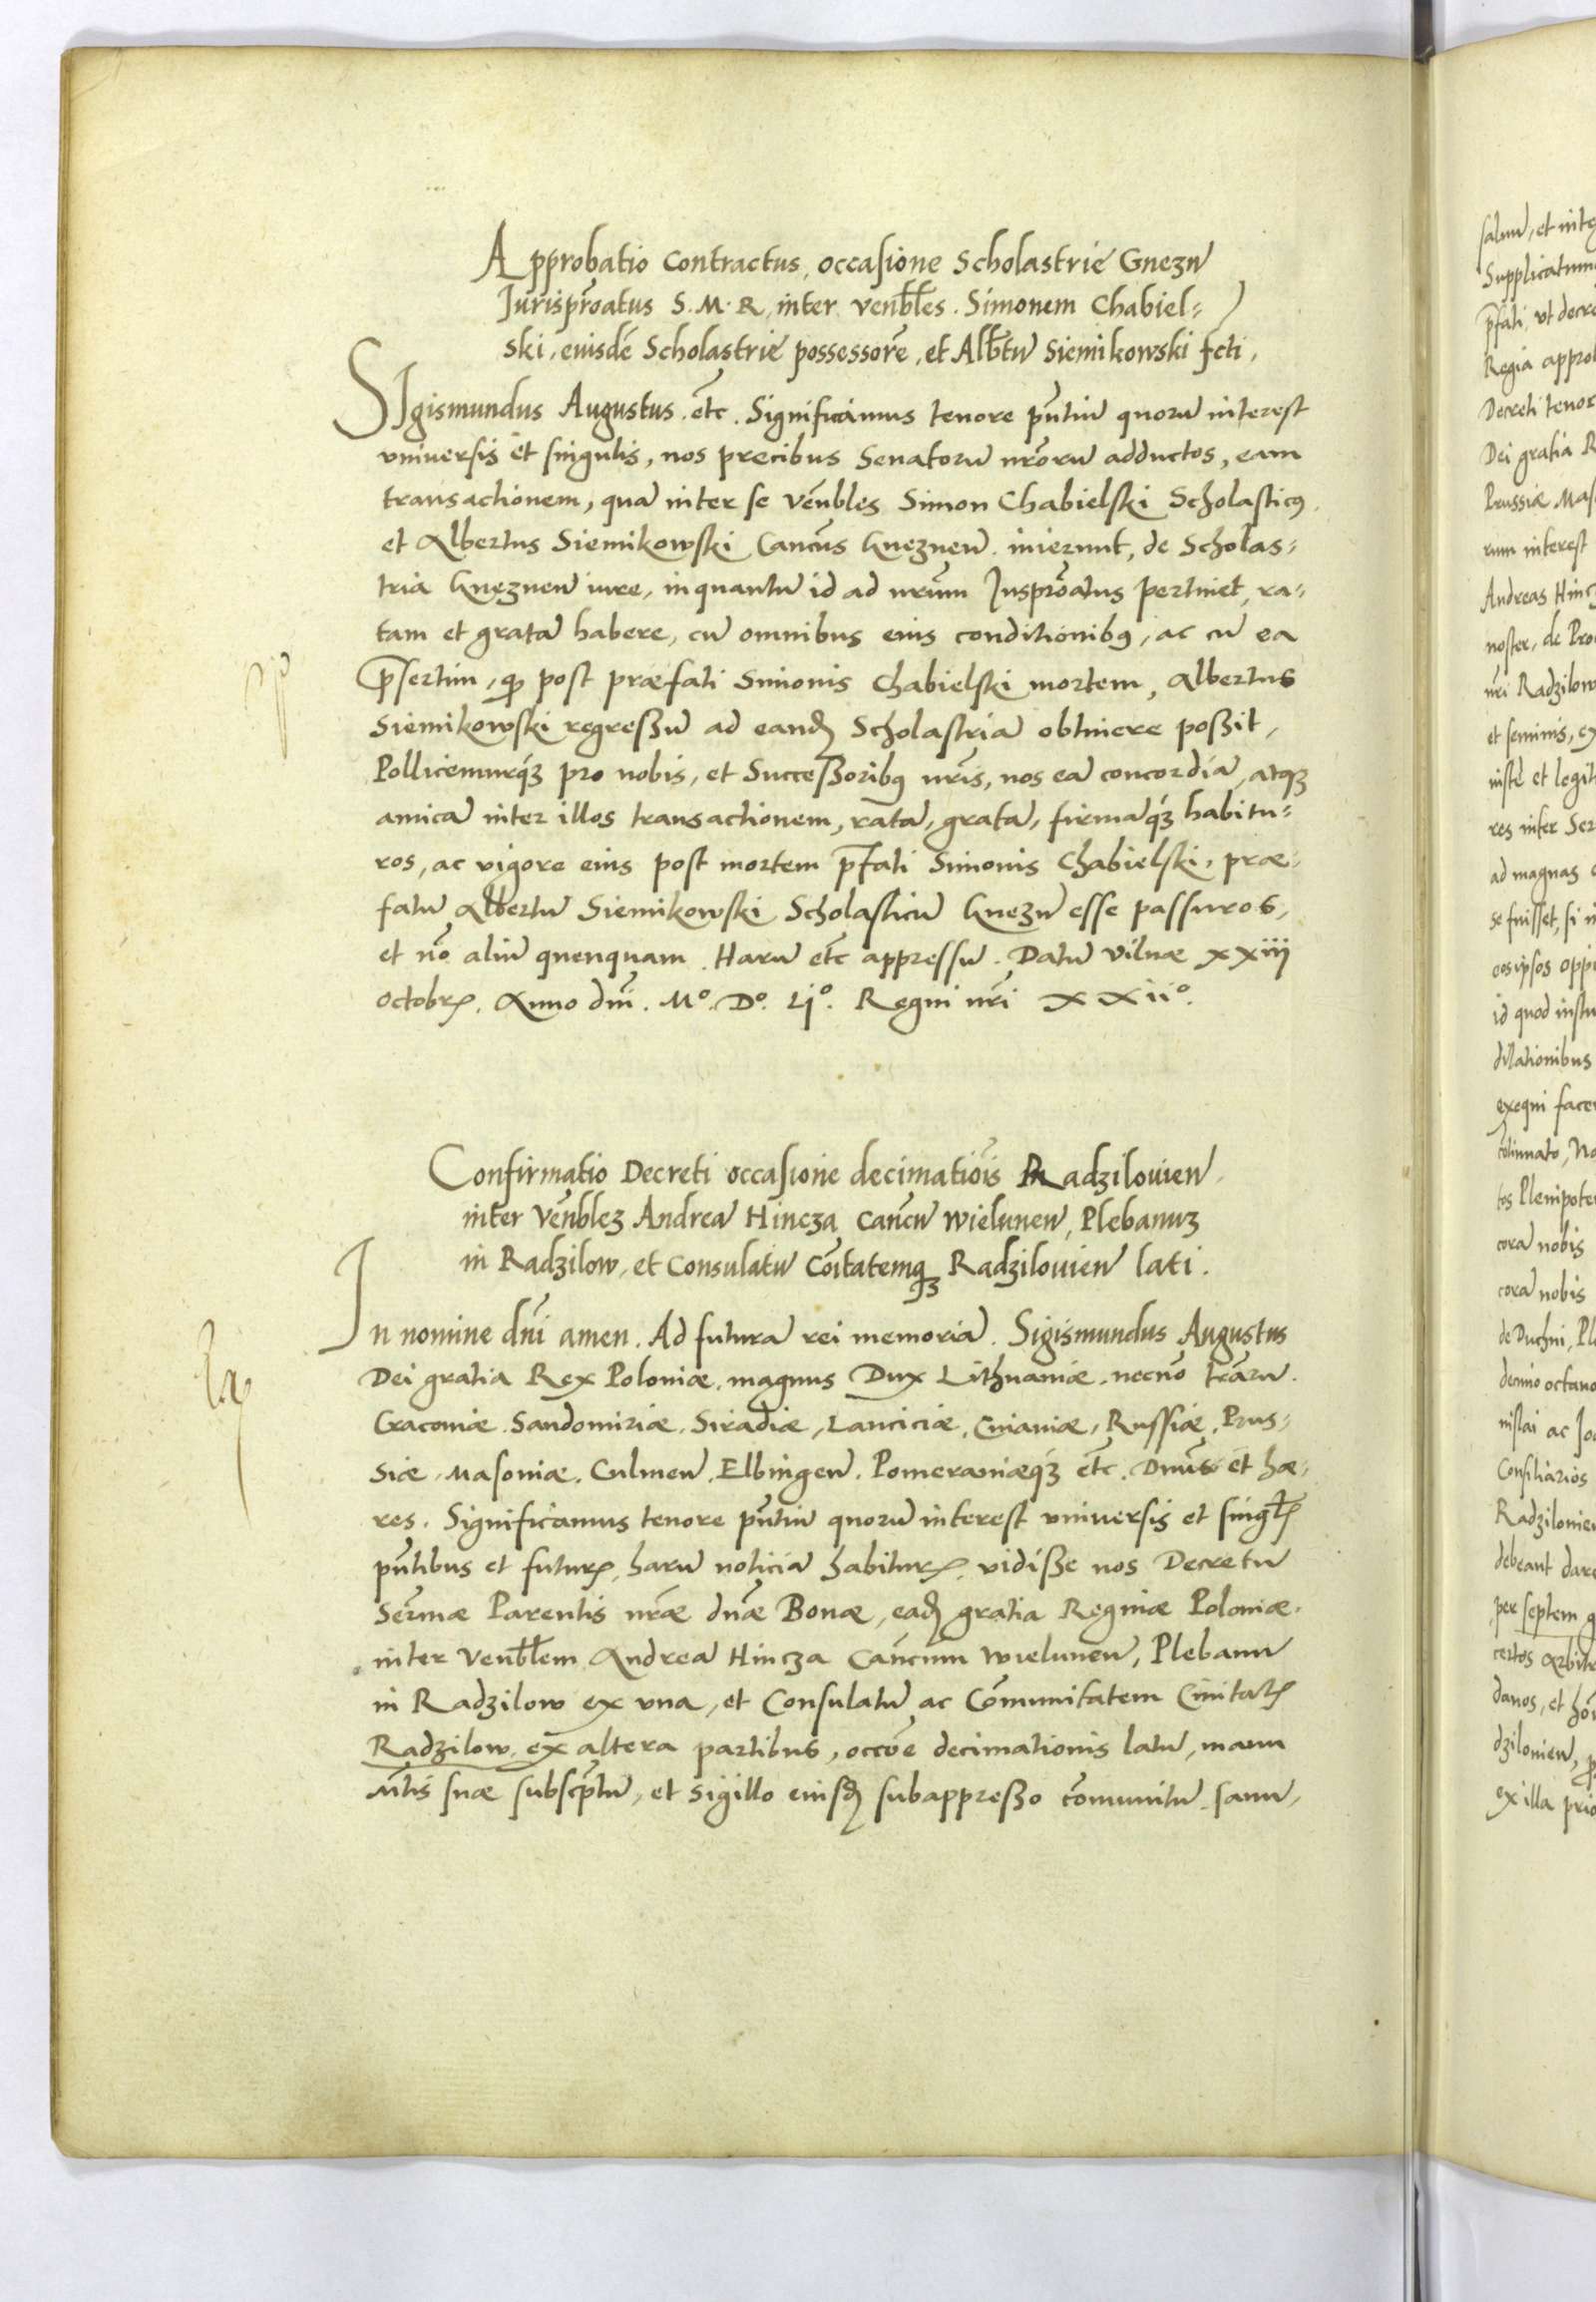 Approbatio Contractus, occasione Scholastrie Gnezn̄
Jurisprōatus S. M. R. inter venb̄les. Simonem Chabiel=
ski, eiusdē Scholastrie possessorē, et Alb̄tū Siemikowski fcti,
SIgismundus Augustus. etc̄. Significamus tenore pn̄tiū quorū interest
vniuersis et singulis, nos precibus Senatorū nrōrū adductos, eam
transactionem, quā inter se vēnbles Simon Chabielski Scholasticꝰ
et Albertus Siemikowski Cancūs Gneznen̄. inierunt, de Scholas=
tria Gneznen̄ iure, inquantū id ad nrūm Juspr̄oatus pertinet, ra=
tam et gratā habere, cū omnibus eius conditionibꝰ, ac cū ea
p̄sertim, qꝫ post præfati Simonis Chabielski mortem, Albertus
Siemikowski regreßū ad eandꝫ Scholastriā obtinere poßit,
Pollicemurqꝫ pro nobis, et Succeßoribꝰ nrīs, nos eā concordiā, atqꝫ
amicā inter illos transactionem, ratā, gratā, firmāqꝫ habitu=
ros, ac vigore eius post mortem p̄fati Simonis Chabielski, præ=
fatū Albertū Siemikowski Scholasticū Gnezn̄ esse passuros,
et nō aliū quenquam. Harū etc̄ appressū. Datū Vilnæ xxiij
octobrꝭ. Anno dnī. Mº. Dº. Ljº. Regni nrī XXiiº.
Confirmatio Decreti occasione decimatiōis Radzilouien̄.
inter Vēnblez Andreā Hincza Cancū Wielunen̄, Plebanuz
in Radzilow, et Consulatū Cōitatemqꝫ Radzilouien̄ lati.
In nomine dnī amen. Ad futurā rei memoriā. Sigismundus Augustus
Dei gratia Rex Poloniæ, magnus Dux Lithuaniæ, necnō trārū.
Cracouiæ. Sandomiriæ. Siradiæ, Lanciciæ, Cuiauiæ, Russiæ, Prus=
siæ, Masouiæ, Culmen̄, Elbingen̄. Pomeraniæqꝫ etc̄. Dnūs et hæ=
res. Significamus tenore pn̄tiū quorū interest vniuersis et singl̄ꝭ
pn̄tibus et futurꝭ, harū noticiā habiturꝭ, vidiße nos Decretū
Serm̄æ Parentis nrǣ dnǣ Bonæ, eadꝫ gratia Reginæ Poloniæ.
inter Venb̄lem Andreā Hincza Cancūm Wielunen̄, Plebanū
in Radzilow ex vna, et Consulatū ac Cōmunitatem Ciuitatꝭ
Radzilow, ex altera partibus, occōe decimationis latū, manu
Mt̄is suæ subscp̄tū, et sigillo eiusdꝫ subappreßo cōmunitū, sanū,
salūū, et inte
Supplicatum
p̄fati, vt decre
Regia appro
Decreti tenor
Dei gratia R
Prussiæ Mas
rum interest
Andreas Hinc
noster, de Pro
nrī Radzilow
et feminis, ex
iustè et legit
res inter Ser
ad magnas
se fuisset, si
eos ipsos oppi
id quod
dilationibus
exequi facer
cōtinuato, No
tos Plenipote
corā nobis
corā nobis
de Duchni, Pl
decimo octauo
nistai ac Jo
Consiliarios
Radzilouien
debeant dare
per septem g
certos Arbit
danos, et ho
dzilouien̄, p
ex illa prio